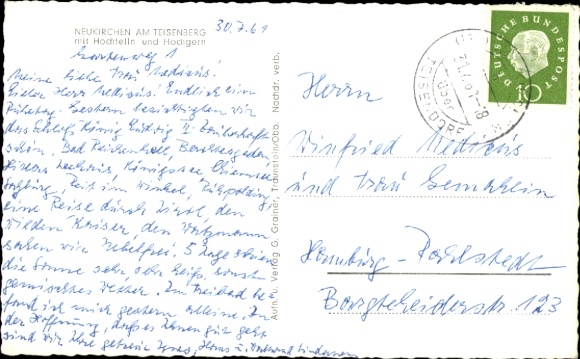 NEUKIRCHEN AM TEISENBERG
mit Hochfelln und Hochgern
30.7.61
Gartenweg 1
Meine liebe Frau Medicus!
Lieber Herr Medicus! Endlich ein
Ruhetag. Gestern besichtigten wir
das Schloß König Ludwig II
Bad Reichenhall, Berchtesgaden
Königssee, Chiemsee
Reit im Winkel, Ruhpolding,
eine Reise durch Tirol, den
wilden Kaiser, den Watzmann
sahen wir Nebelfrei, 5 Tage schien
die Sonne sehr, sehr heiß, sonst
gemischtes Wetter. Im Freibad be-
fand ich mich gestern alleine. In
der Hoffnung, daß es Ihnen gut geht
sind wir Ihre
Auto. u. Verlag G. Grainer, Traunstein/Obb. Nachdr. verb.
DEUTSCHE BUNDESPOST
10
TEISENDORF
Herrn
Winfried Medicus
und Frau Gemahlin
Hamburg-Rahlstedt
Bargteheiderstr. 123